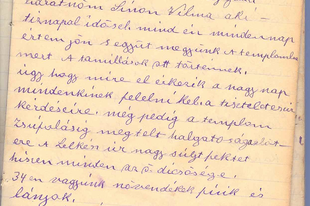 barátnőm Simon Vilma aki -
tiznapal idősebb mind én minden nap
értem jön s együt megyünk A templomba
mert A tanullások ott történnek.
úgy hogy mire el érkezik a nagy nap
mindenkinek felelni kel a tiszteletes úr
kérdéseire. még pedig a templom
zsúfolásig meg telt halgatóságelőt-
ere A Lelkész úr nagy súlyt fektet
hiszen minden az ő dicsősége.
34 en vagyunk növendékek fiúk és
lányok.